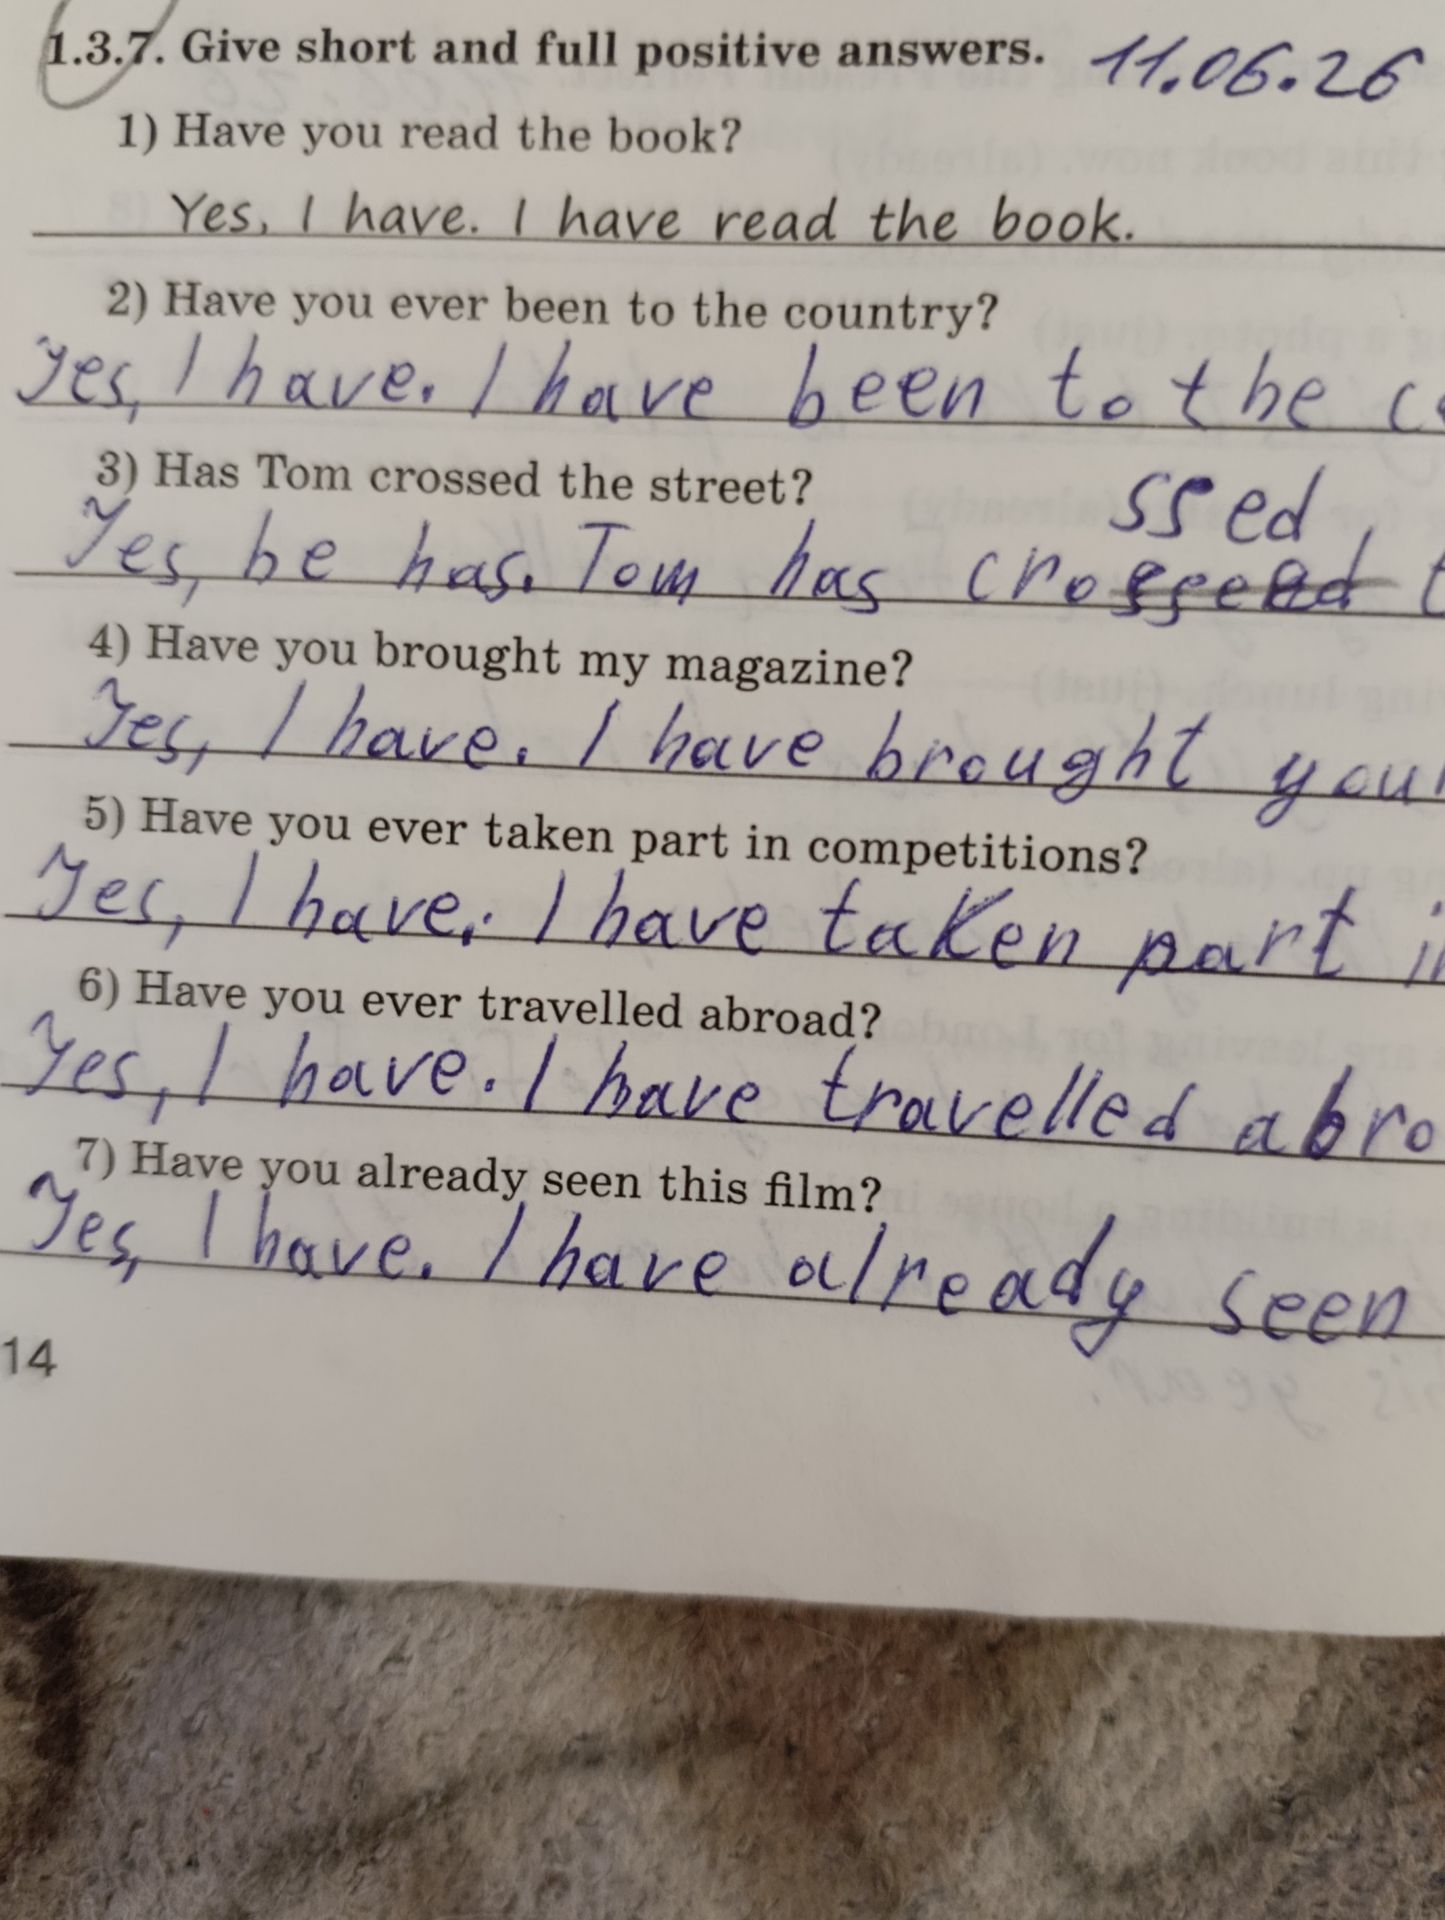 1.3.7. Give short and full positive answers. 11.06.26
1) Have you read the book?
Yes, I have. I have read the book.
2) Have you ever been to the country?
Yes, I have. I have been to the
3) Has Tom crossed the street?
ssed
Yes, he has. Tom has cro
4) Have you brought my magazine?
Yes, I have. I have brought your
5) Have you ever taken part in competitions?
Yes, I have. I have taken part in
6) Have you ever travelled abroad?
Yes, I have. I have travelled abro
7) Have you already seen this film?
Yes, I have. I have already seen
14